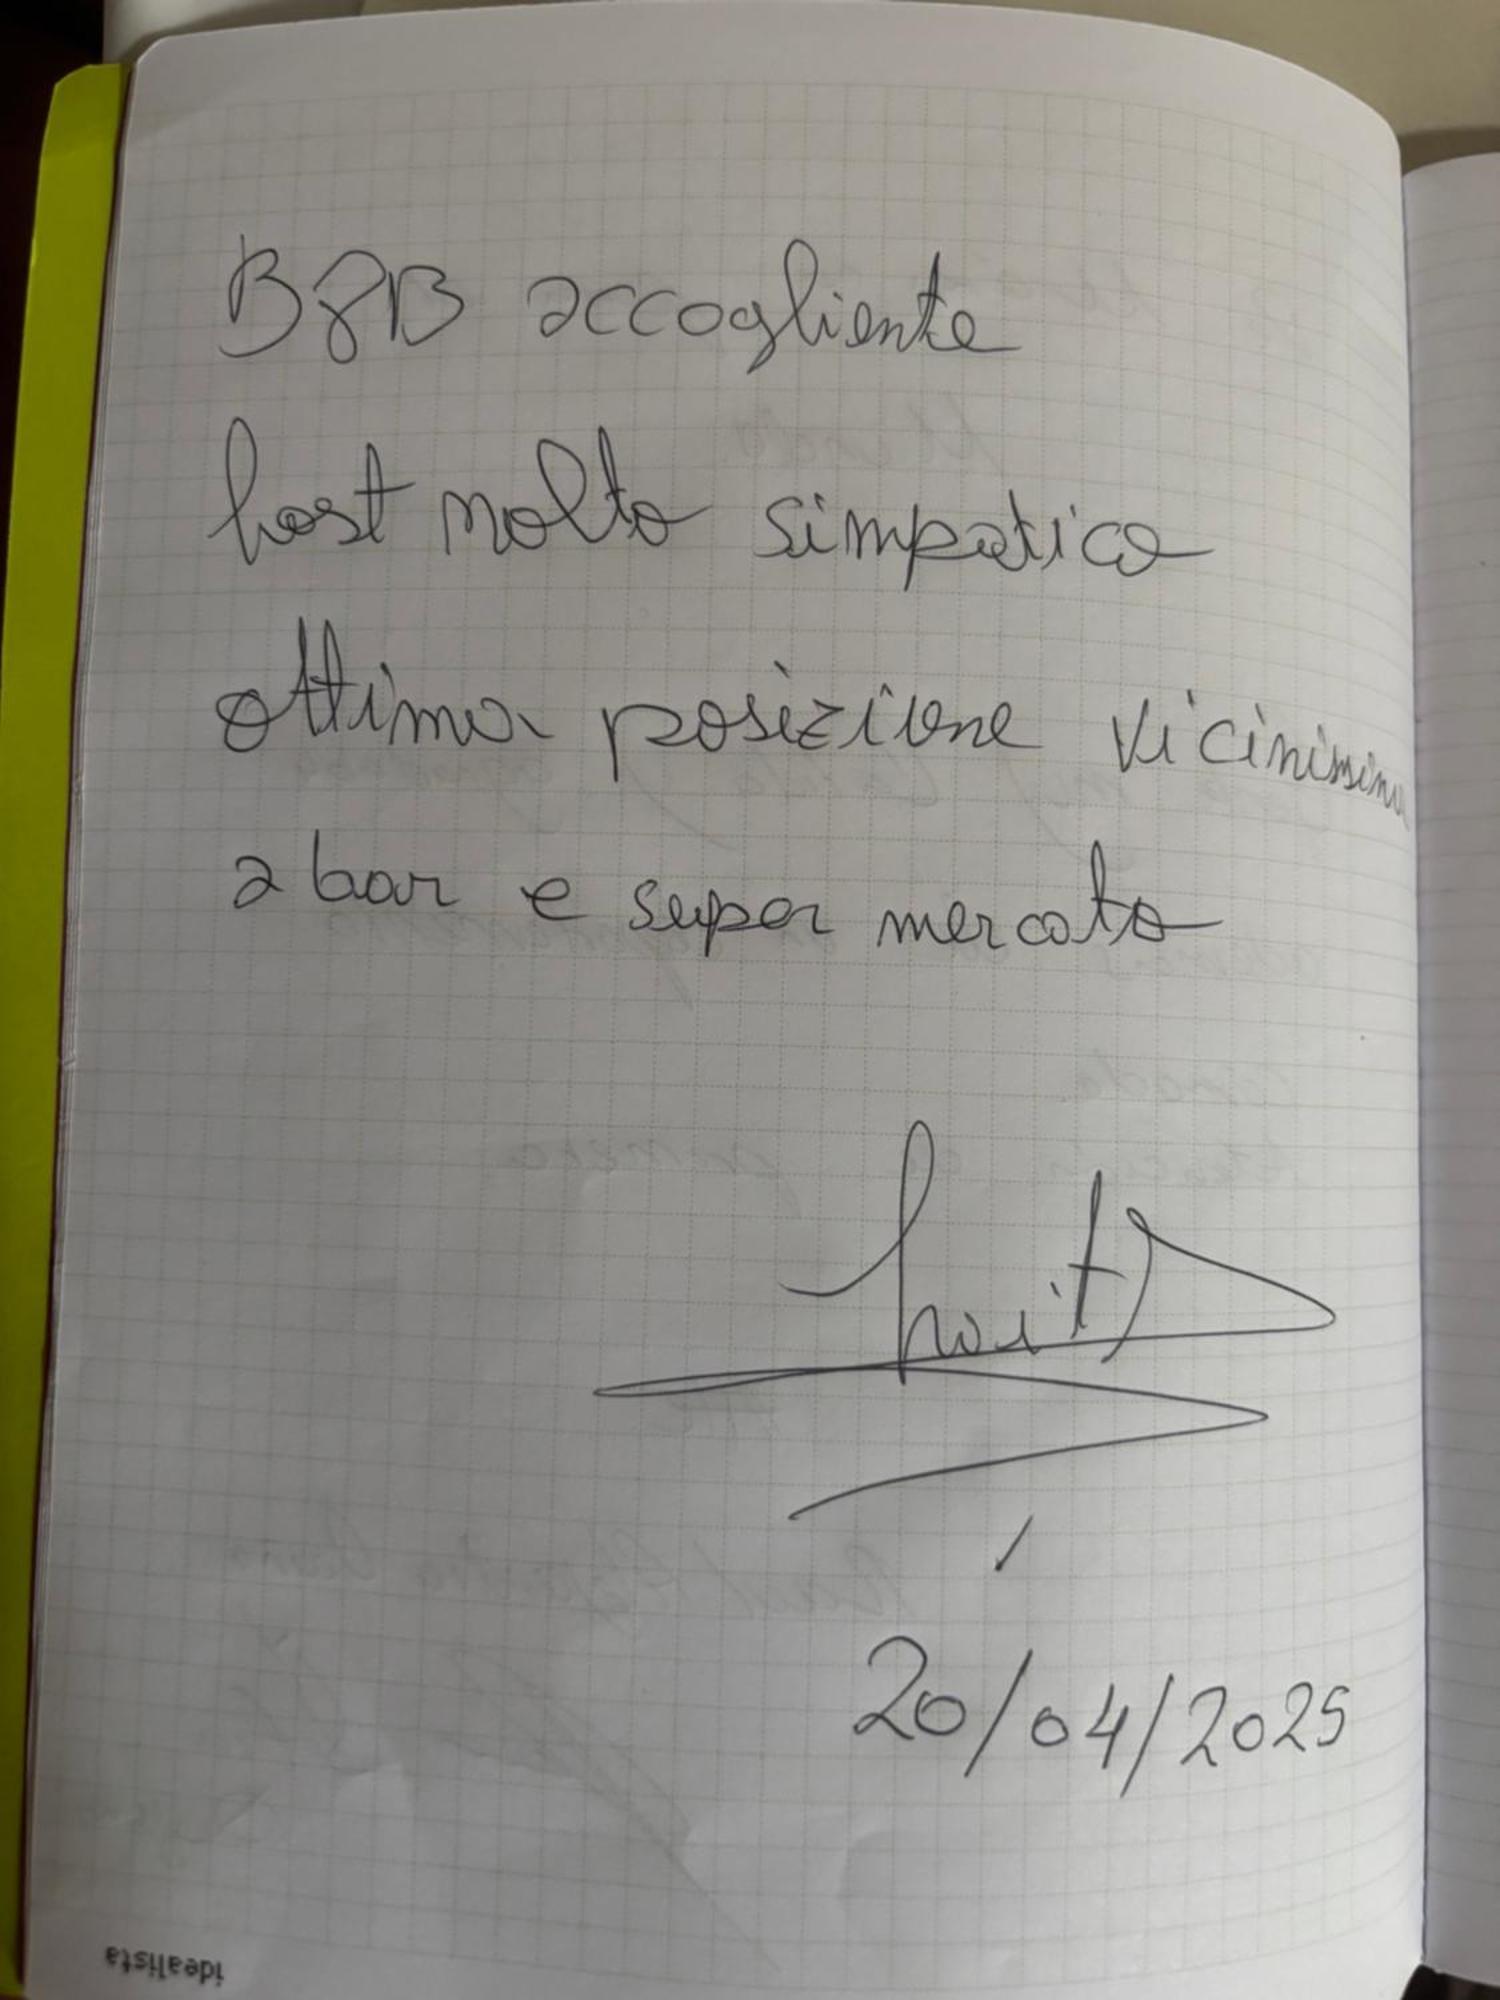 B&B accogliente
host molto simpatico
ottima posizione vicinissimo
a bar e super mercato
20/04/2025
idealista